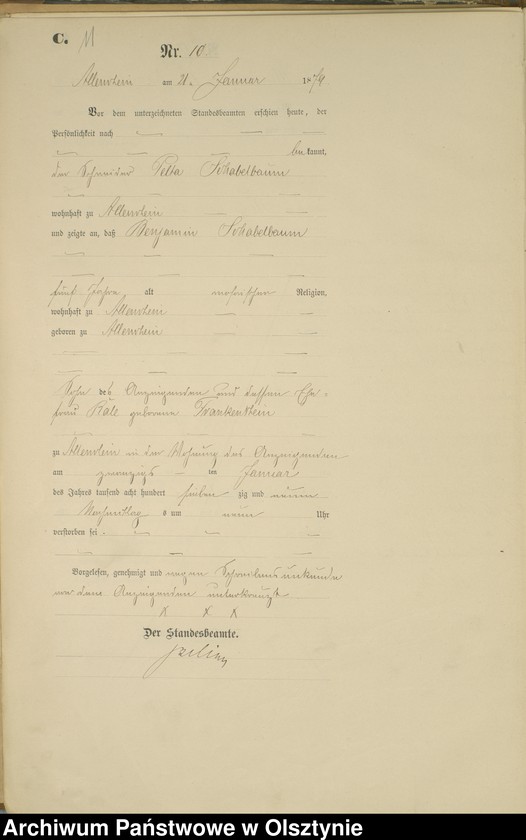 C. 11
Nr. 10
Allenstein am 21. Januar 1879
Vor dem unterzeichneten Standesbeamten erschien heute, der
Persönlichkeit nach
bekannt,
der Schneider Schabelbaum
wohnhaft zu Allenstein
und zeigte an, daß Benjamin Schabelbaum
fünf Jahre alt mosaischer Religion,
wohnhaft zu Allenstein
geboren zu Allenstein
Sohn des Anzeigenden und dessen Ehe-
frau geborene Frankenstein
zu Allenstein in der Wohnung des Anzeigenden
am zwanzigs ten Januar
des Jahres tausend acht hundert sieben zig und neun
Nachmittags um neun Uhr
verstorben sei.
Vorgelesen, genehmigt und wegen Schreibensunkunde
von dem Anzeigenden unterkreuzt
X X X
Der Standesbeamte.
Archiwum Państwowe w Olsztynie